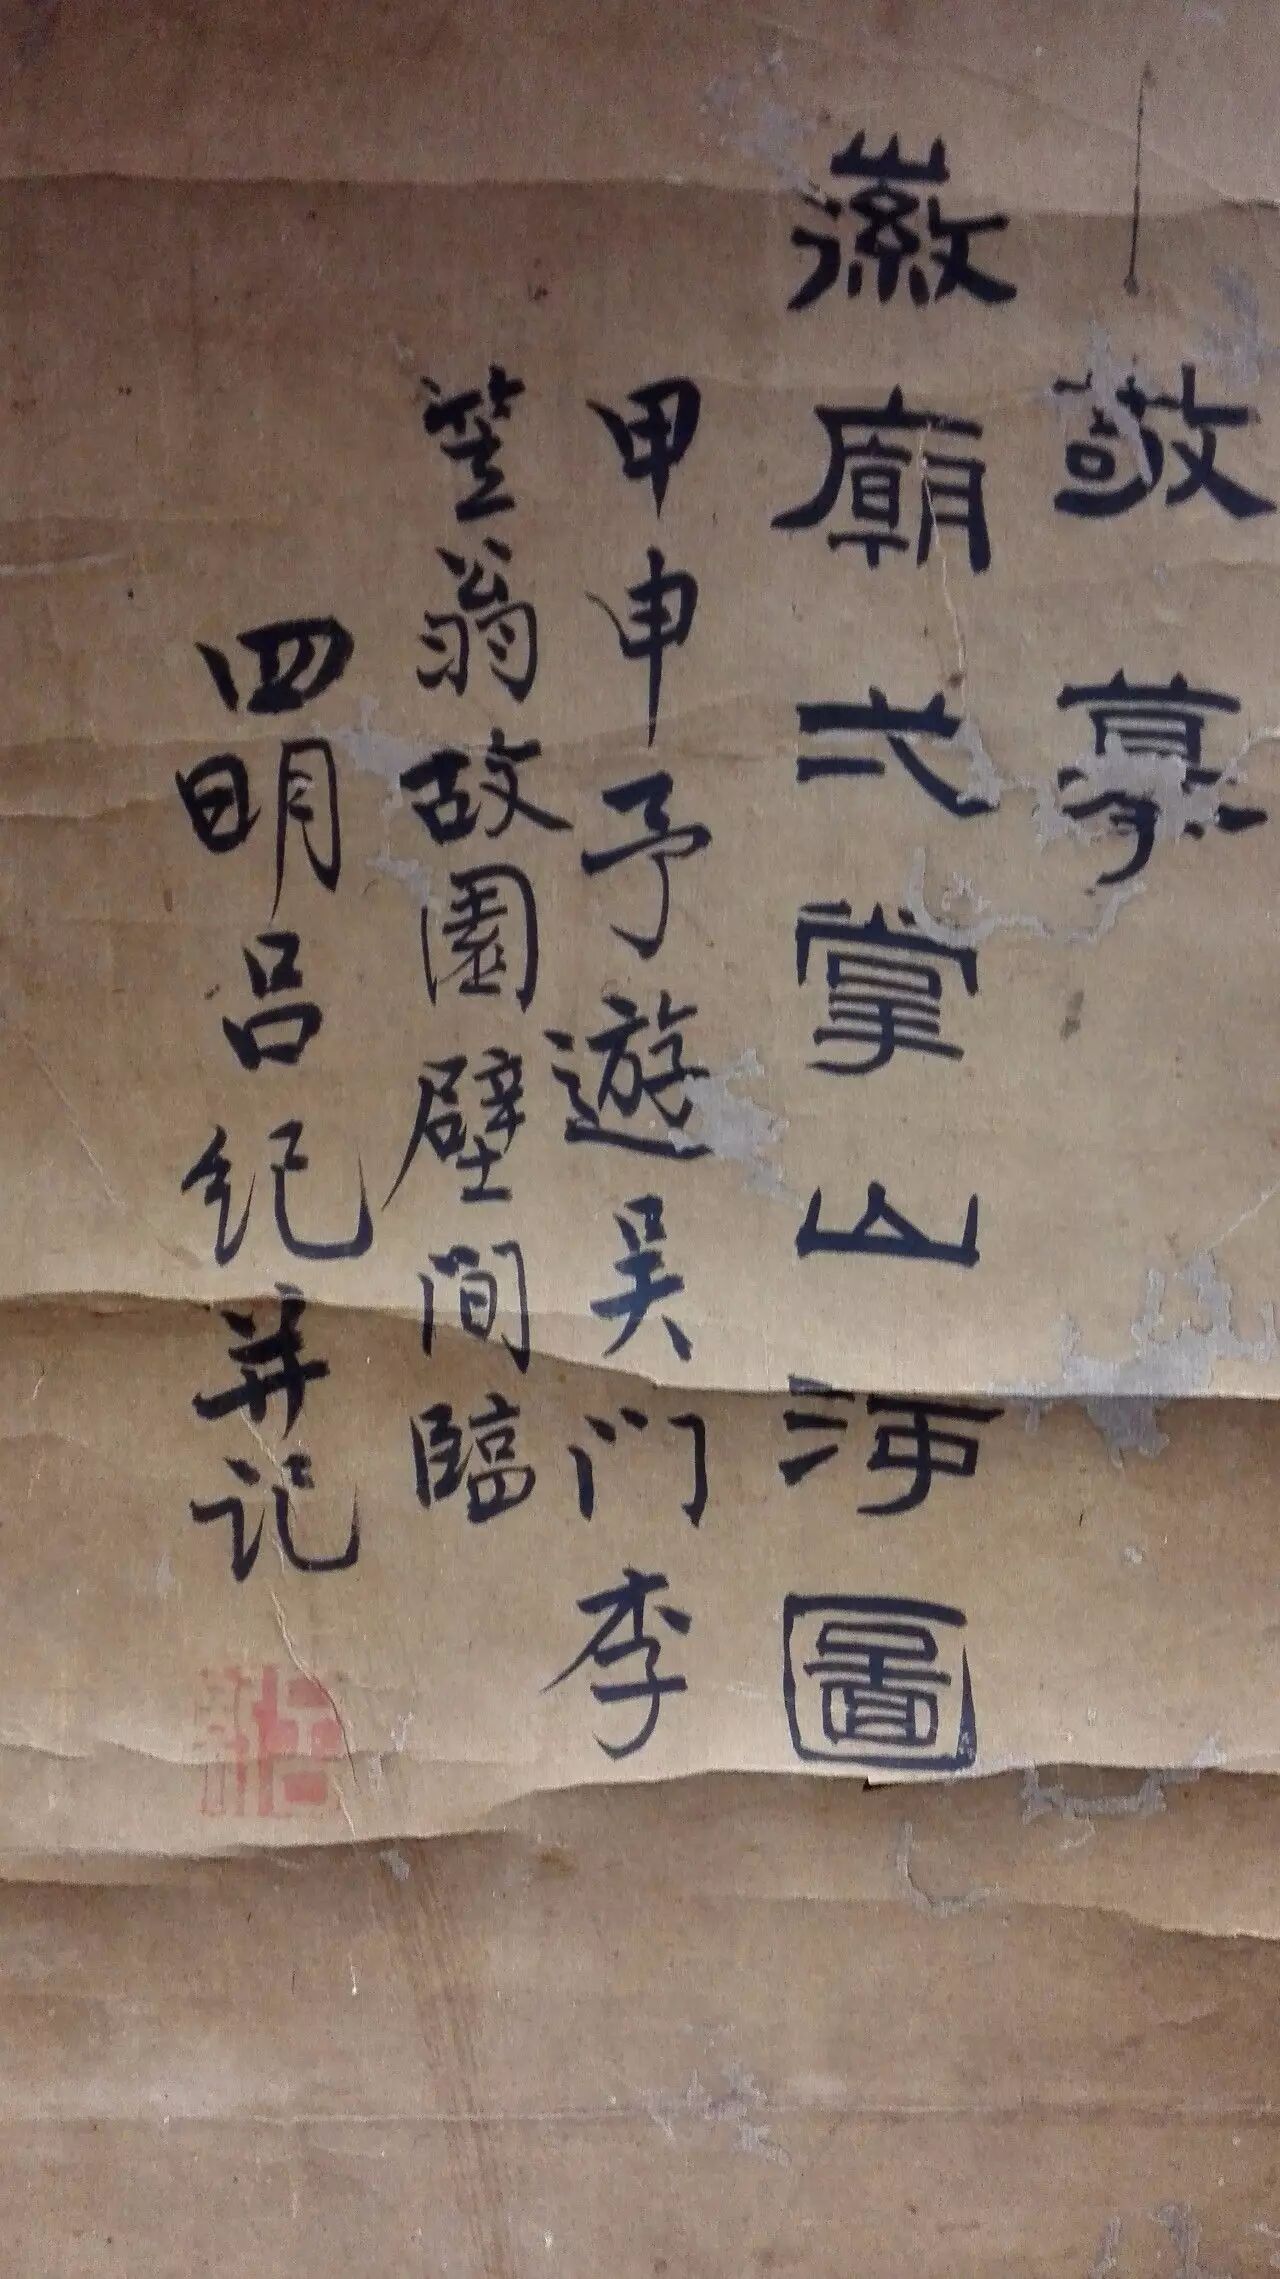 敬摹
徽廟弍掌山河圖
甲申予遊吴门李
笠翁故園壁间臨
四明吕纪并记